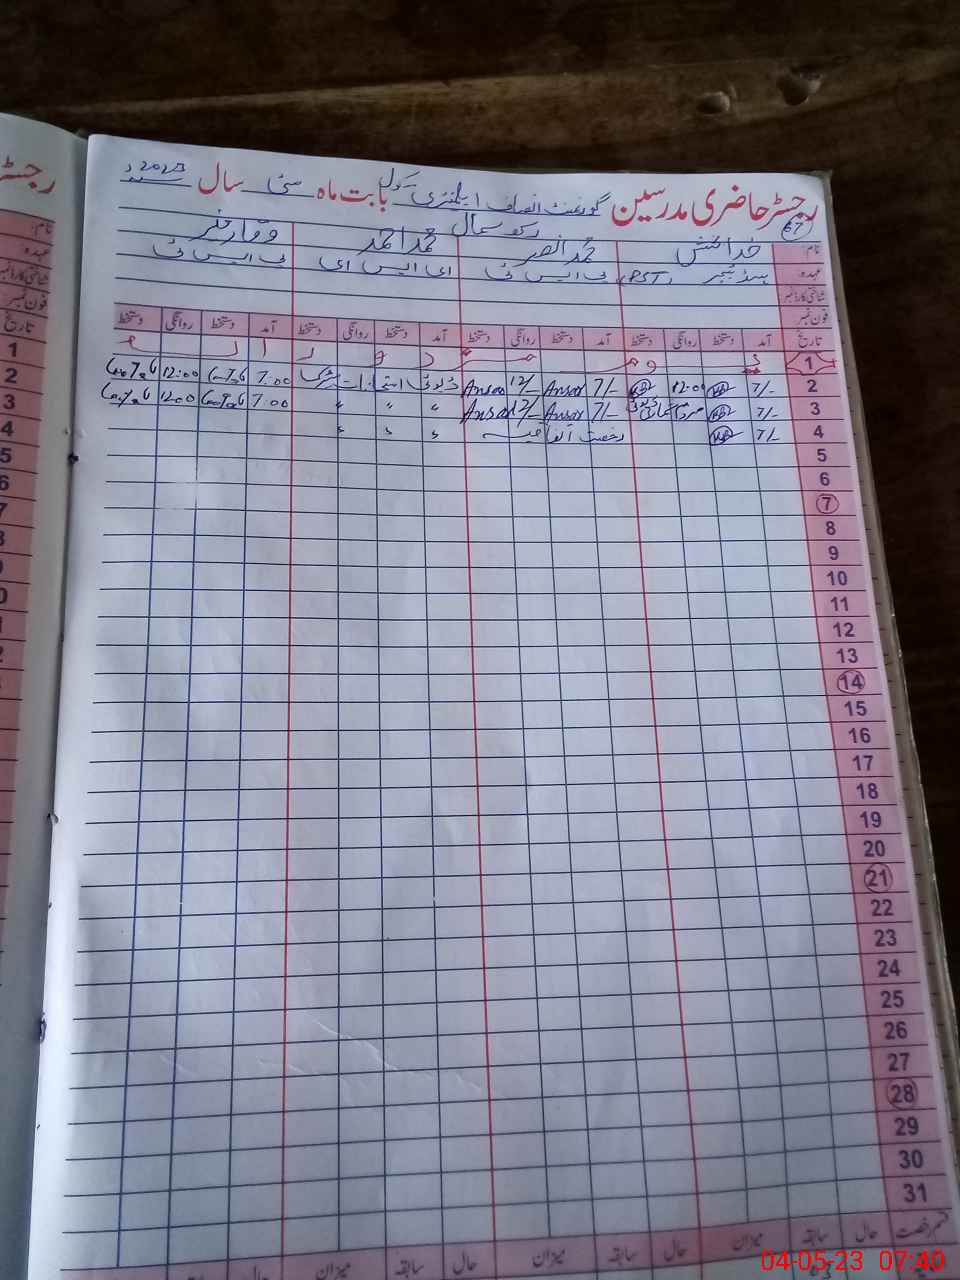 رجسٹر حاضری مدرسین گورنمنٹ انصاف ایلیمنٹری سکول بابت ماہ مئی سال 2023ء
67
نام خدا بخش محمد انصر محمد احمد وقار
عہدہ ہیڈ ٹیچر (PST) پی ایس ٹی ای ایس ای پی ایس ٹی
شناختی کارڈ نمبر
فون نمبر
تاریخ آمد دستخط روانگی دستخط آمد دستخط روانگی دستخط آمد دستخط روانگی دستخط آمد دستخط روانگی دستخط
1
2 7/- 12:00 7/- Ansar 12/- Ansar ڈیوٹی امتحانات 7:00 12:00
3 7/- ڈیوٹی 7/- Ansar 12/- Ansar " " " 7:00 12:00
4 7/- رخصت اتفاقیہ " " "
5
6
7
8
9
10
11
12
13
14
15
16
17
18
19
20
21
22
23
24
25
26
27
28
29
30
31
قسم رخصت حال سابقہ میزان حال سابقہ میزان حال سابقہ میزان
04-05-23 07:40
رجسٹر
نام
عہدہ
شناختی کارڈ نمبر
فون نمبر
تاریخ
1
2
3
4
5
6